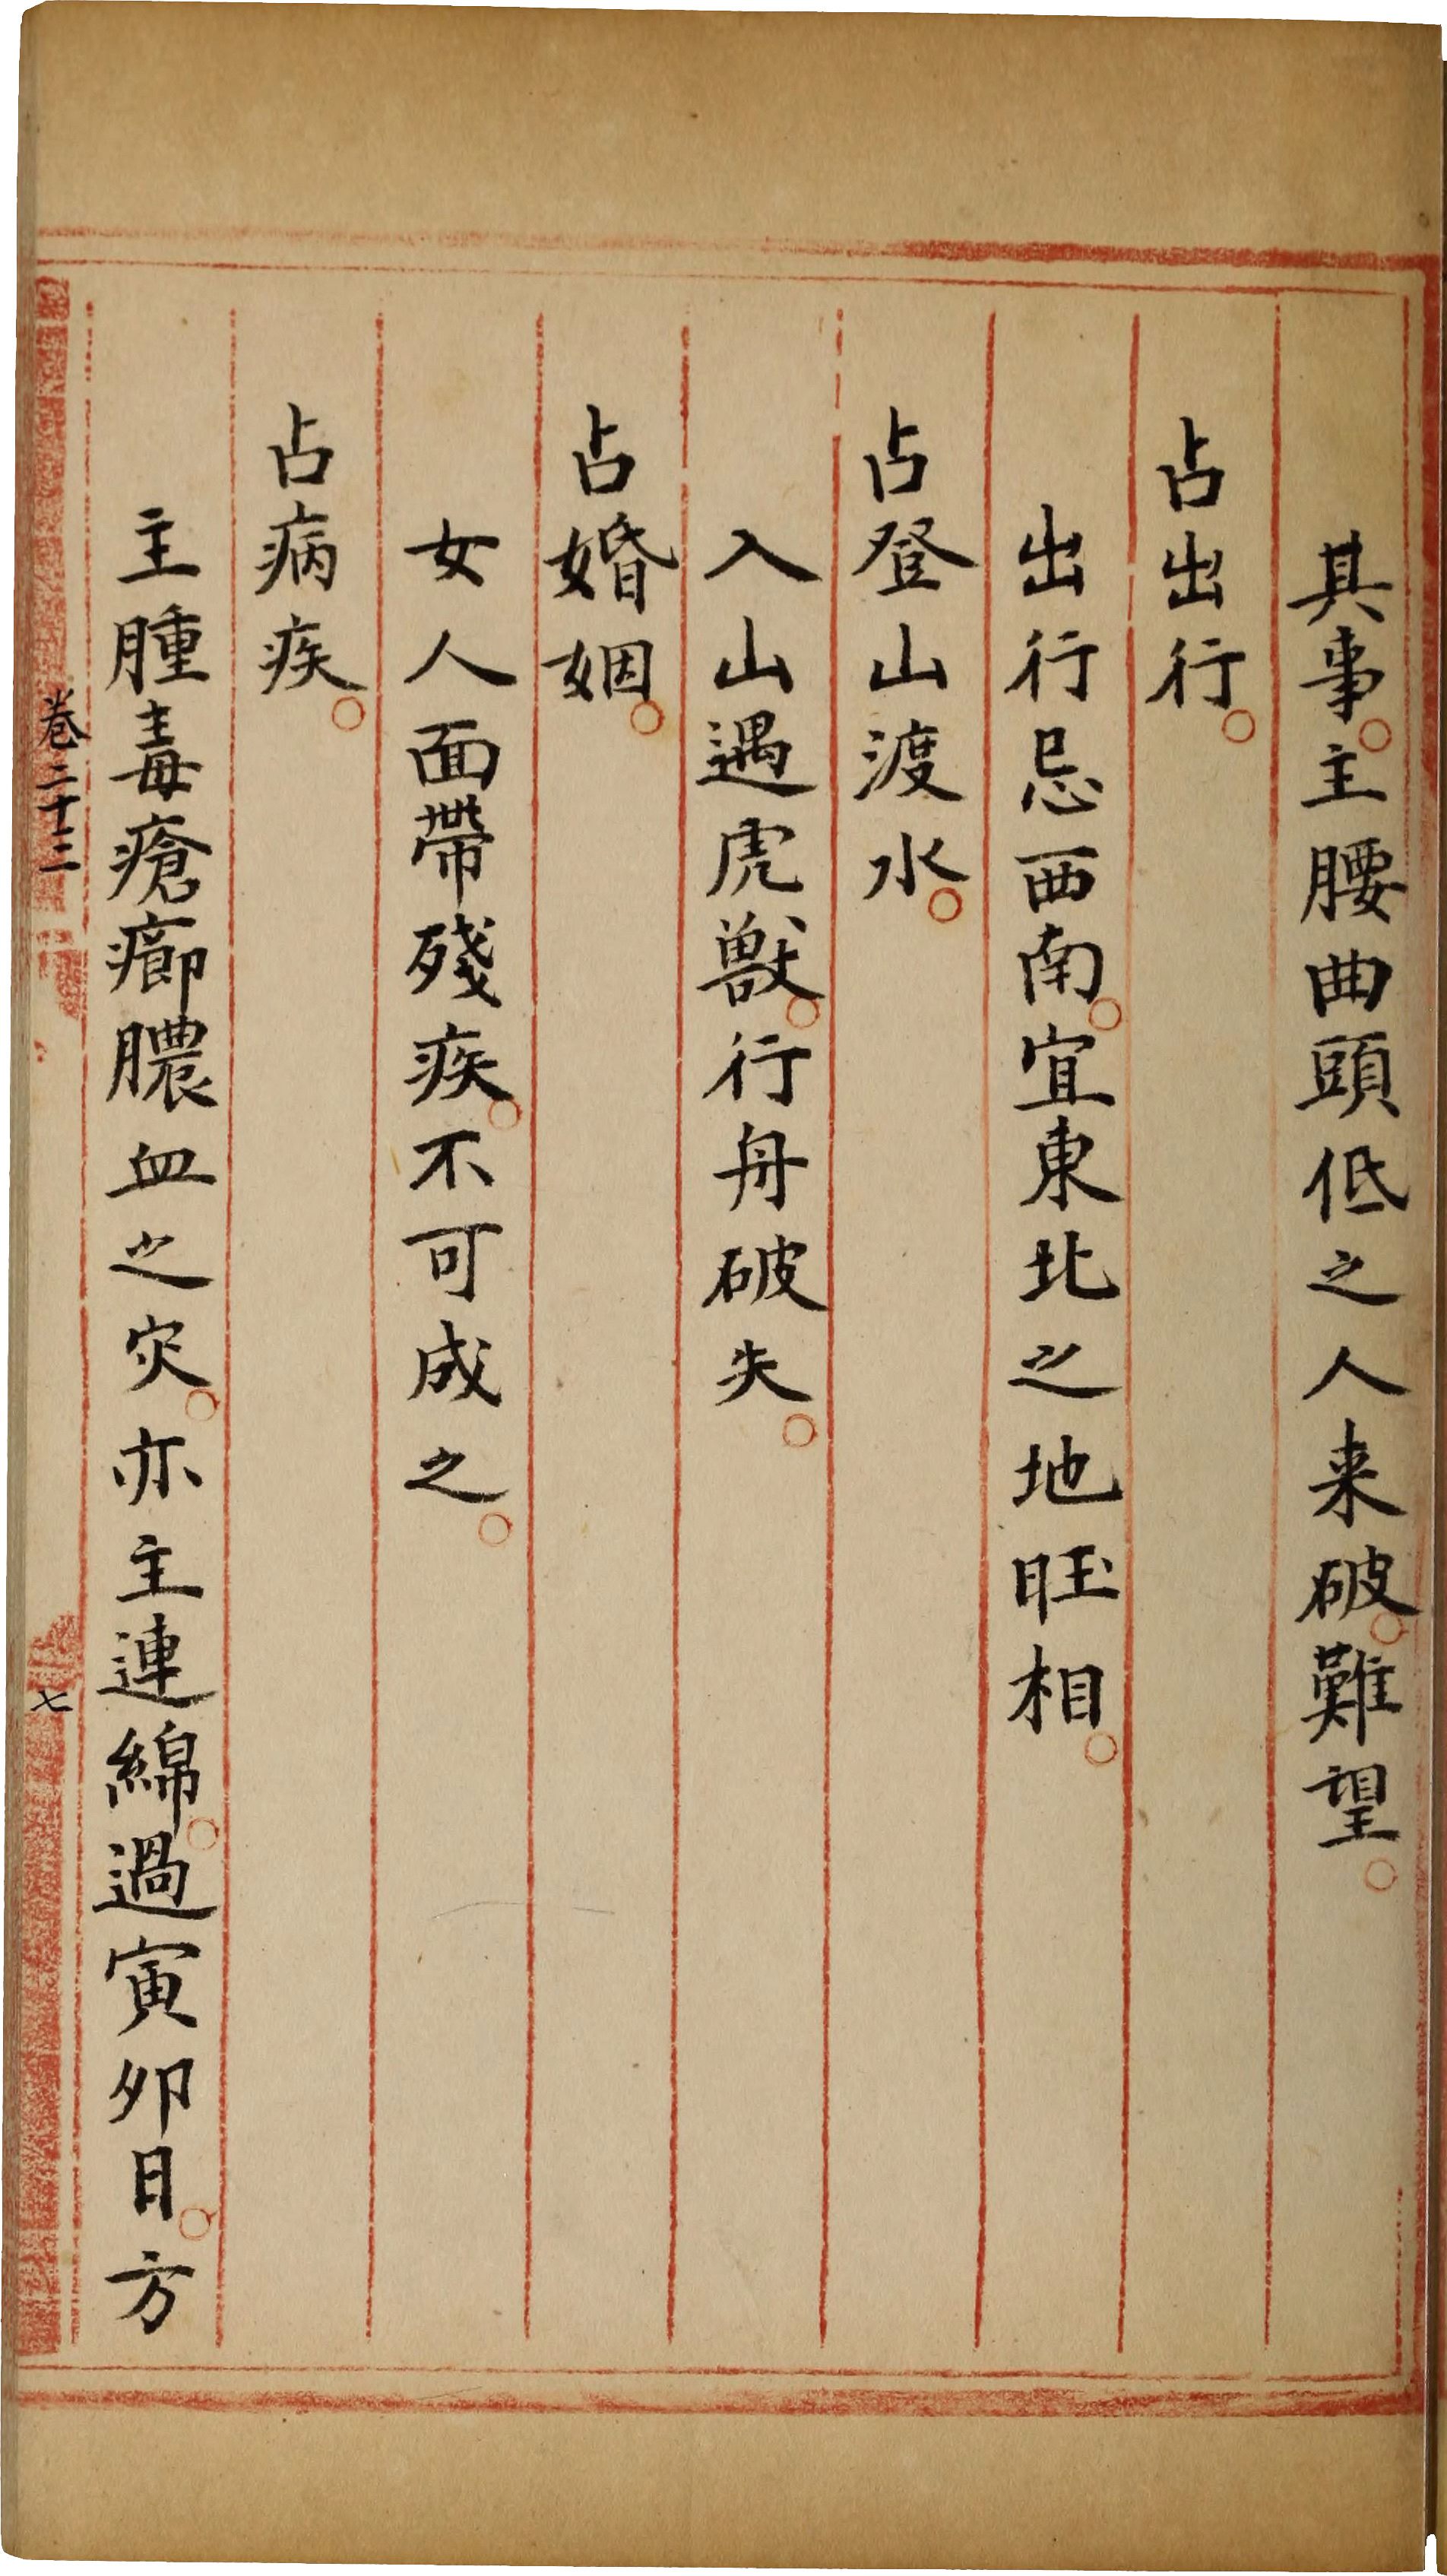 其事。主腰曲頭低之人来破。難望。
占出行。
出行忌西南。宜東北之地旺相。
占登山渡水。
入山遇虎獸。行舟破失。
占婚姻。
女人面帶殘疾。不可成之。
占病疾。
主腫毒瘡癤膿血之灾。亦主連綿。過寅卯日。方
卷二十二
七